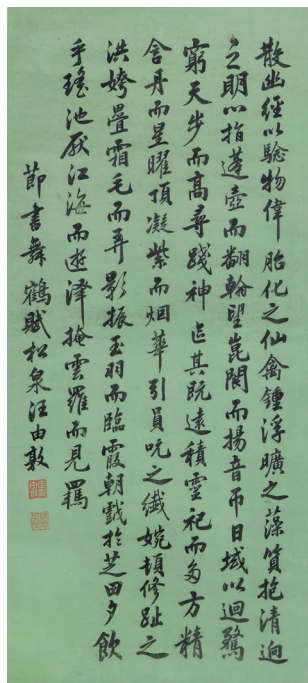 散幽經以驗物偉胎化之仙禽鍾浮曠之藻質抱清迥
之明心指蓬壺而翻翰望崑閬而揚音帀日域以迴騖
窮天步而高尋踐神區其既遠積靈祀而多方精
含丹而星曜頂凝紫而烟華引員吭之纖婉頓修趾之
洪姱疊霜毛而弄影振玉羽而臨霞朝戲於芝田夕飲
乎瑤池厭江海而遊澤掩雲羅而見羈
節書舞鶴賦松泉汪由敦